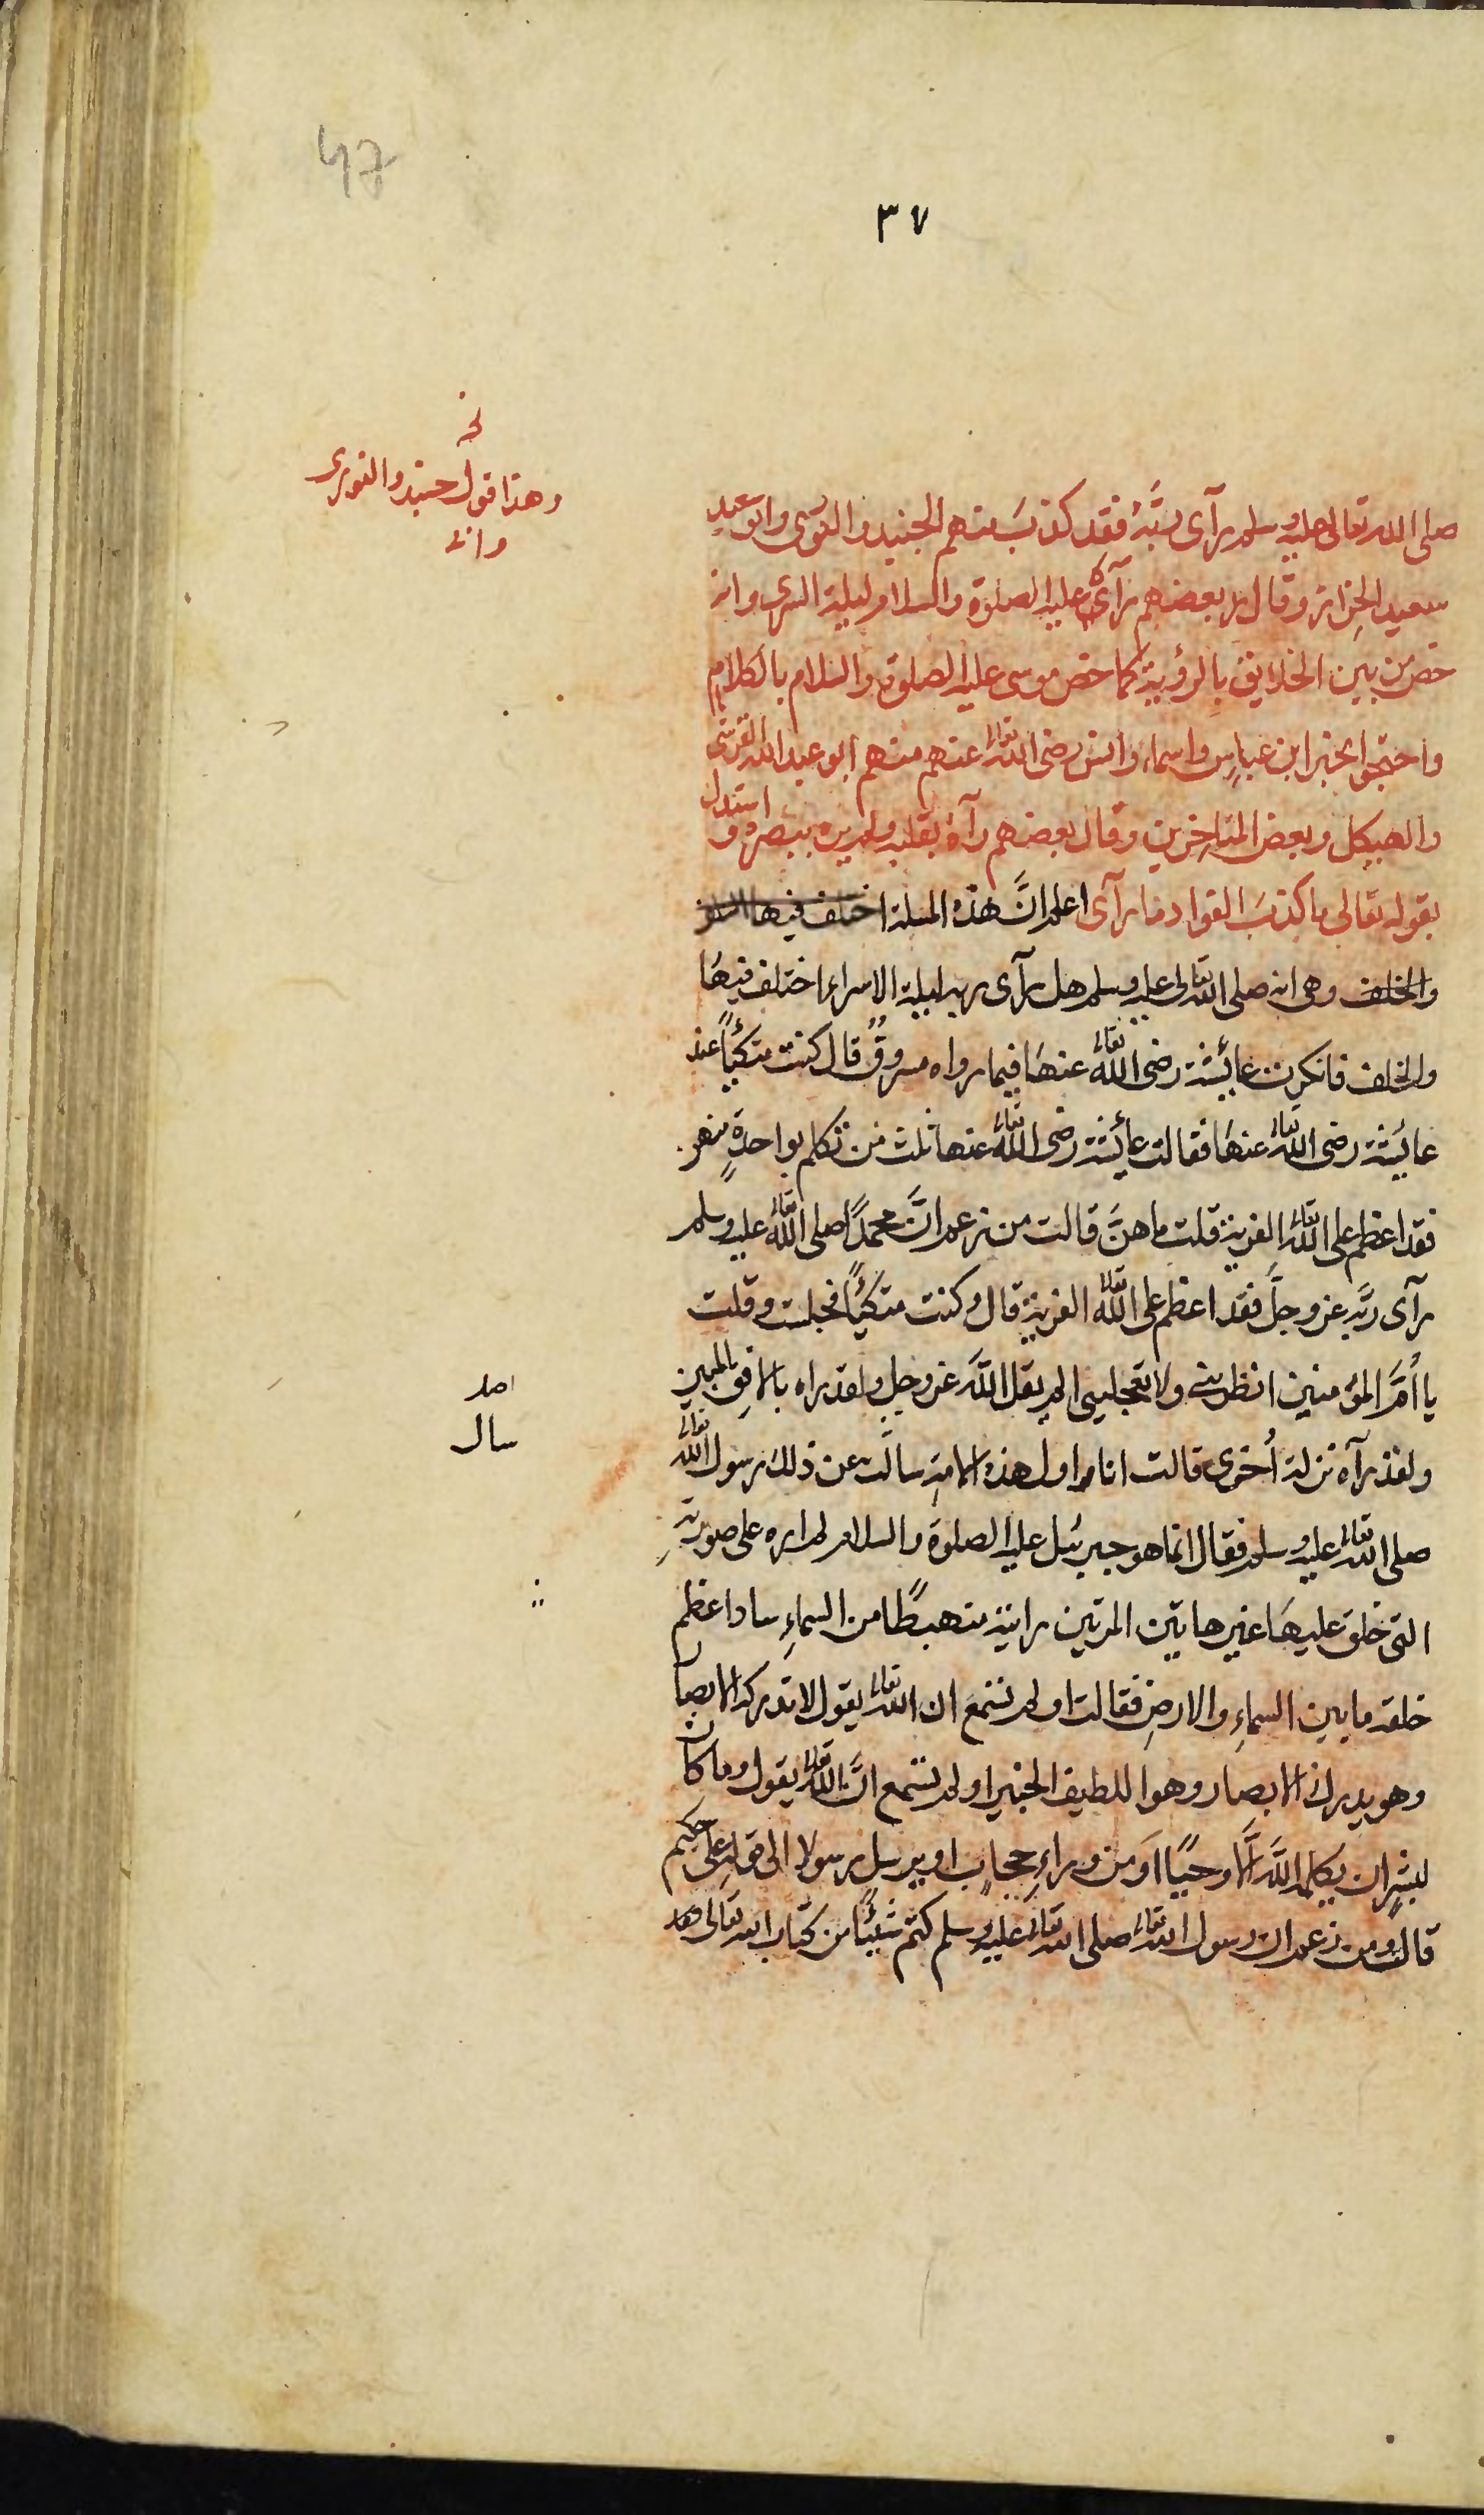 47
٣٧
نخ
وهذا قول جنيد والنورى
وانه
صلى الله تعالى عليه وسلم رآى ربَّهُ فقد كذبَ منهم الجنيد والنورى وابو سعيد
سعيد الخراز وقال بعضهم رآى عليه الصلوة والسلام ليلة السرى وانه
خص من بين الخلايق بالرؤية كما خص موسى عليه الصلوة والسلام بالكلام
واحتجوا بخبر ابن عباس واسماء وانس رضى الله تعالى عنهم منهم ابو عبد الله القرشى
والهيكل وبعض المتاخرين وقال بعضهم رآه بقلبه ولم يره ببصره و استدل
بقوله تعالى ما كذبَ الفواد ما رآى اعلم انَّ هذه المسلة اختلف فيها السلف
والخلف وهى انه صلى الله تعالى عليه وسلم هل رآى ربه ليلة الاسراء اختلف فيها
والخلف فانكرت عائشة رضى الله تعالى عنها فيما رواه مسروقٌ قال كنت متكئاً عند
عايشة رضى الله تعالى عنها فقالت عائشة رضى الله تعالى عنها ثلث من تكلم بواحدةٍ منهن
فقد اعظم على الله تعالى الفرية قلت ما هنَّ قالت من زعم انَّ محمداً صلى الله تعالى عليه وسلم
رآى ربَّه عز وجلَّ فقد اعظم على الله تعالى الفرية قال وكنت متكئاً فجلست وقلت
يا اُمَّ المؤمنين انظرينى ولا تعجلينى الم يقل اللهُ عز وجل ولقد راه بالافق المبين
ولقد رآه نزلة اُخرى قالت انا اول هذه الامة سالت عن ذلك رسول الله تعالى
اصل
سال
صلى الله تعالى عليه وسلم فقال انما هو جبريئل عليه الصلوة والسلام لم اره على صورته
التى خلق عليها غير هاتين المرتين رايته منهبطًا من السماءِ سادا عظم
خلقه ما بين السماءِ والارضِ فقالت او لم تسمع ان الله تعالى يقول لا تدركه الابصار
وهو يدرك الابصار وهو اللطيف الخبير او لم تسمع انَّ الله تعالى يقول وما كان
لبشرٍ ان يكلمه اللهُ الَّا وحيًا او من وراءِ حجابٍ او يرسل رسولا الى قوله على حكيم
قالت ومن زعم ان رسول الله تعالى صلى الله تعالى عليه وسلم كتم شيئًا من كتاب الله تعالى فقد